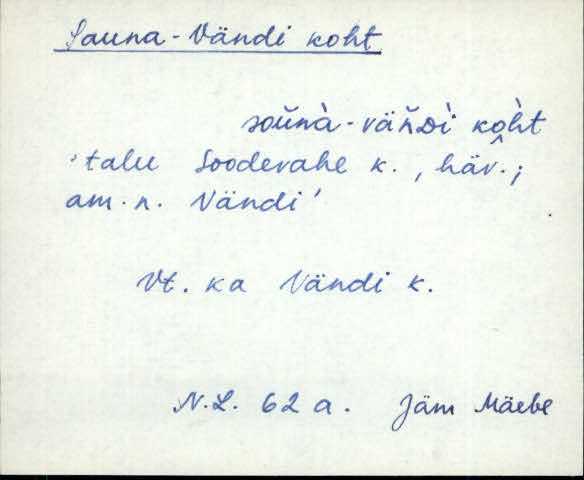 Sauna-Vändi koht
sou̯nà-vän̆Dì ko̭h̀t
'talu Soodevahe k., häv.;
am. n. Vändi'
Vt. ka Vändi k.
N.L. 62 a. Jäm Mäebe